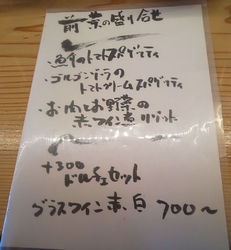 前菜の盛り合せ
・魚介のトマトスパゲティ
・ゴルゴンゾーラの
トマトクリームスパゲティ
・お肉とお野菜の
赤ワイン煮リゾット
+300
ドルチェセット
グラスワイン赤、白 700〜